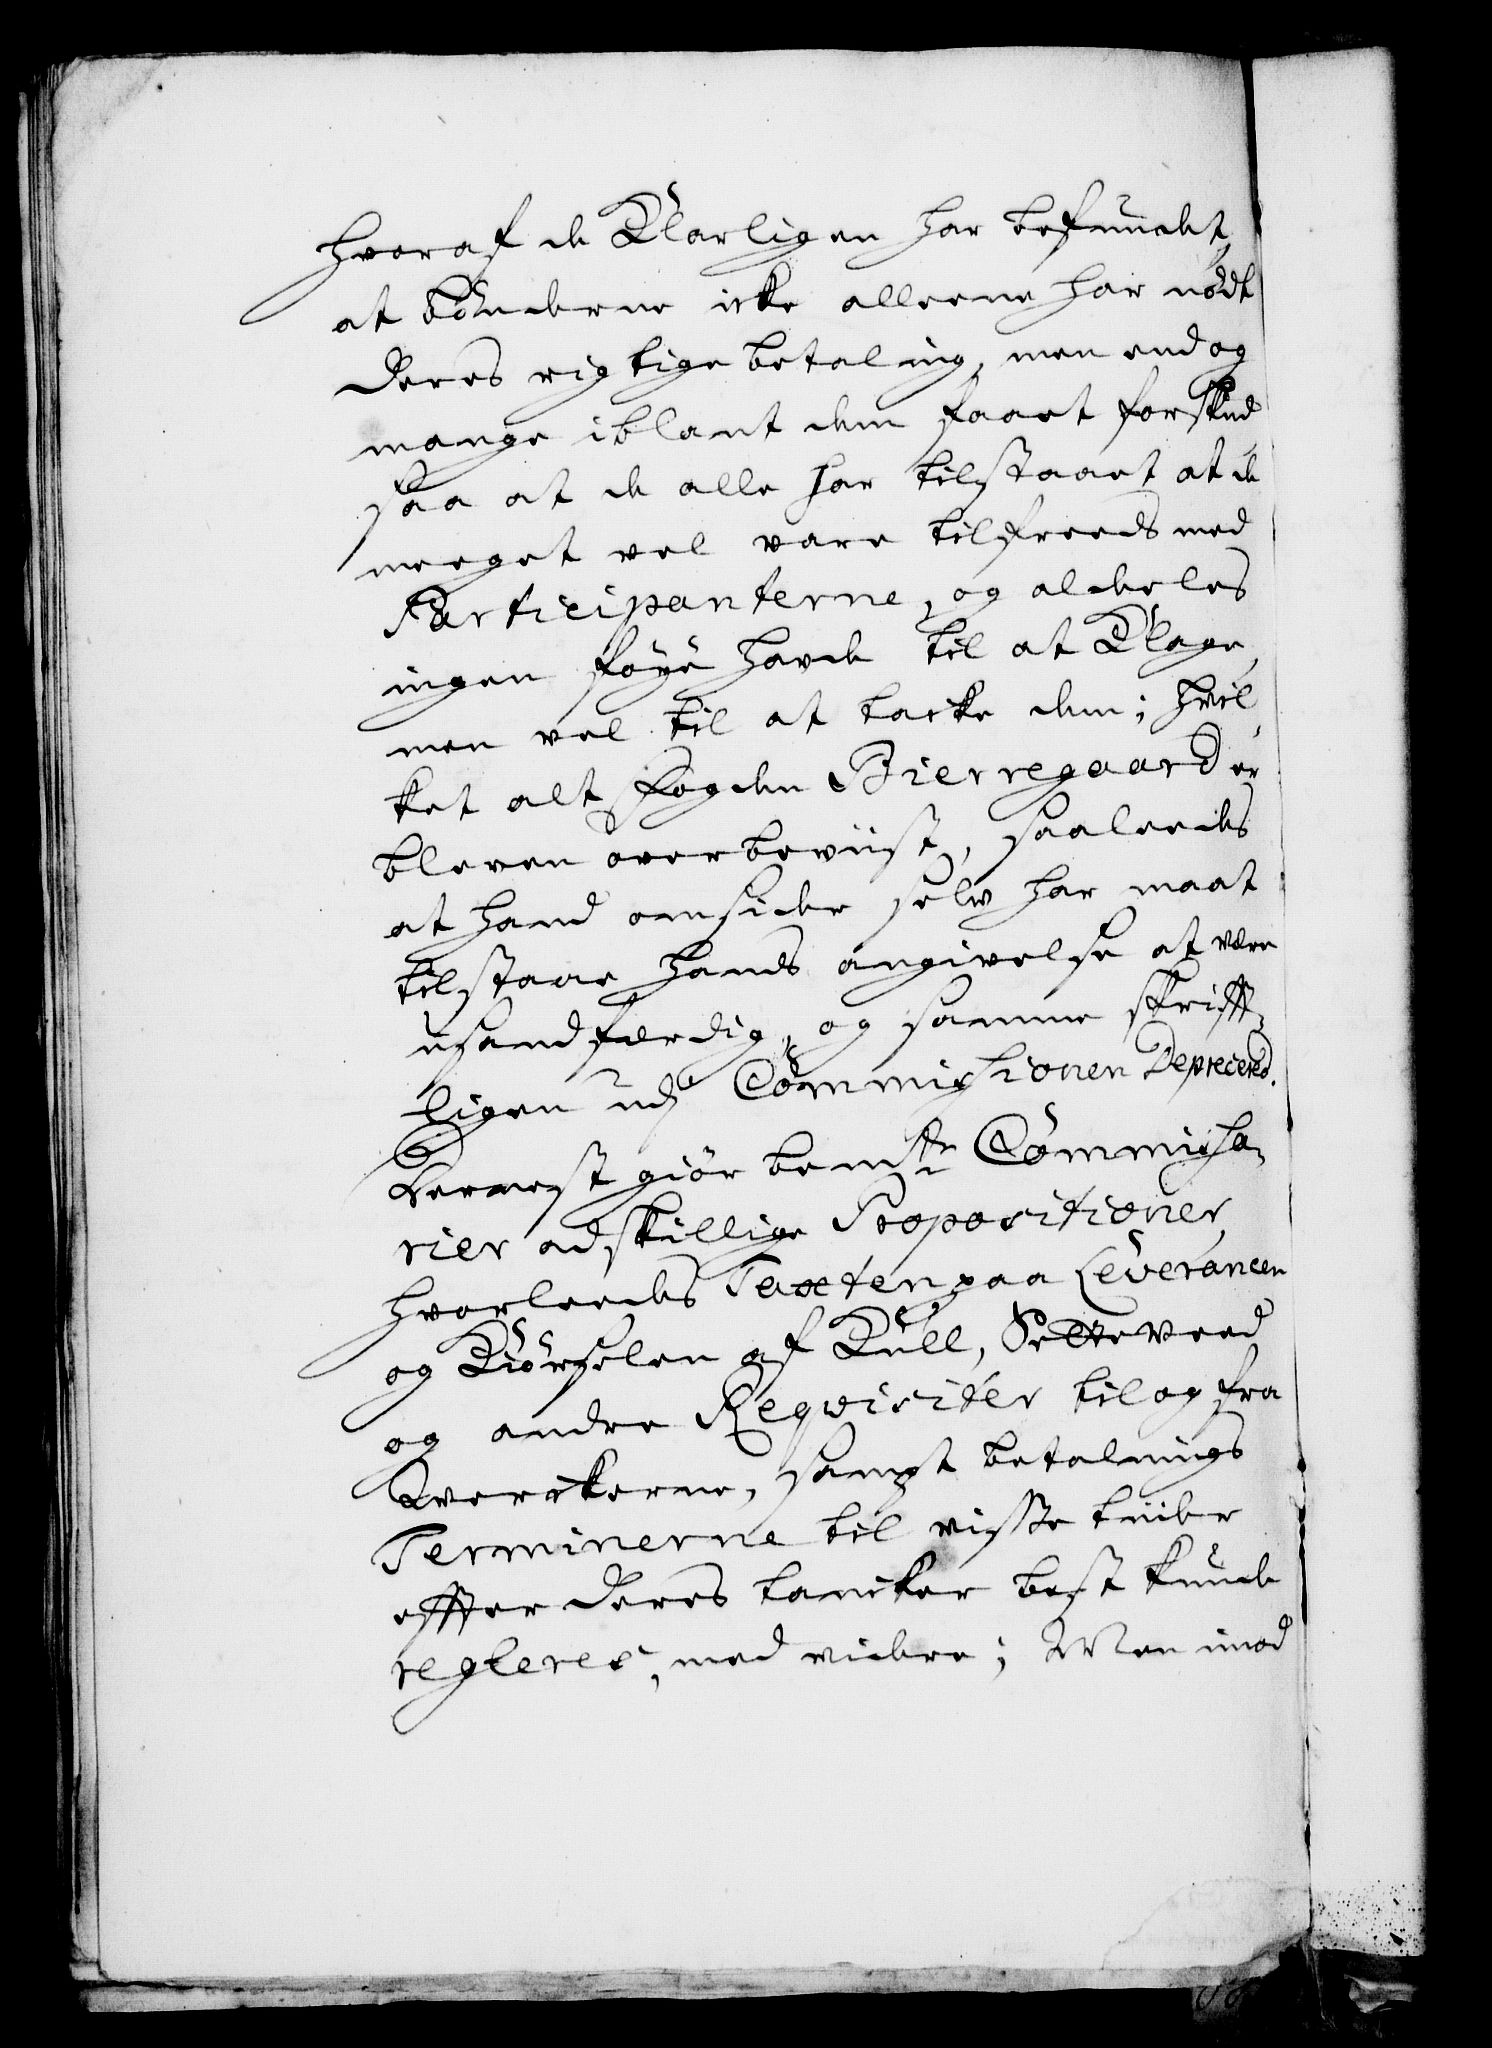 hvoraf de Klarligen har befundet,
at bönderne icke alleene har nödt
deres rigtige betaling, men end og
mange iblant dem faaet forskud
saa at de alle har tilstaaet at de
meeget vel vare tilfreeds med
Participanterne, og aldeeles
ingen föye havde til at Klage,
men vel til at tacke dem; hvil
ket alt fogden Bierregaard er
bleven overbeviist, saaleedes
at hand omsider selv har maat
tilstaae hands angivelse at være
usandfærdig, og samme skrifft-
ligen udj Commissionen Deprecered.
Dernest giör bemte Commissa-
rier adskillige Propositioner,
hvorleedes Taxten paa Leverancen
og Kiörselen af Kull, Setteveed
og andre Reqvisiter til og fra
Verckerne, sampt betalnings
Terminerne til visse tiider
effter deres tancker best kunde
regleres, med videre; Men imod